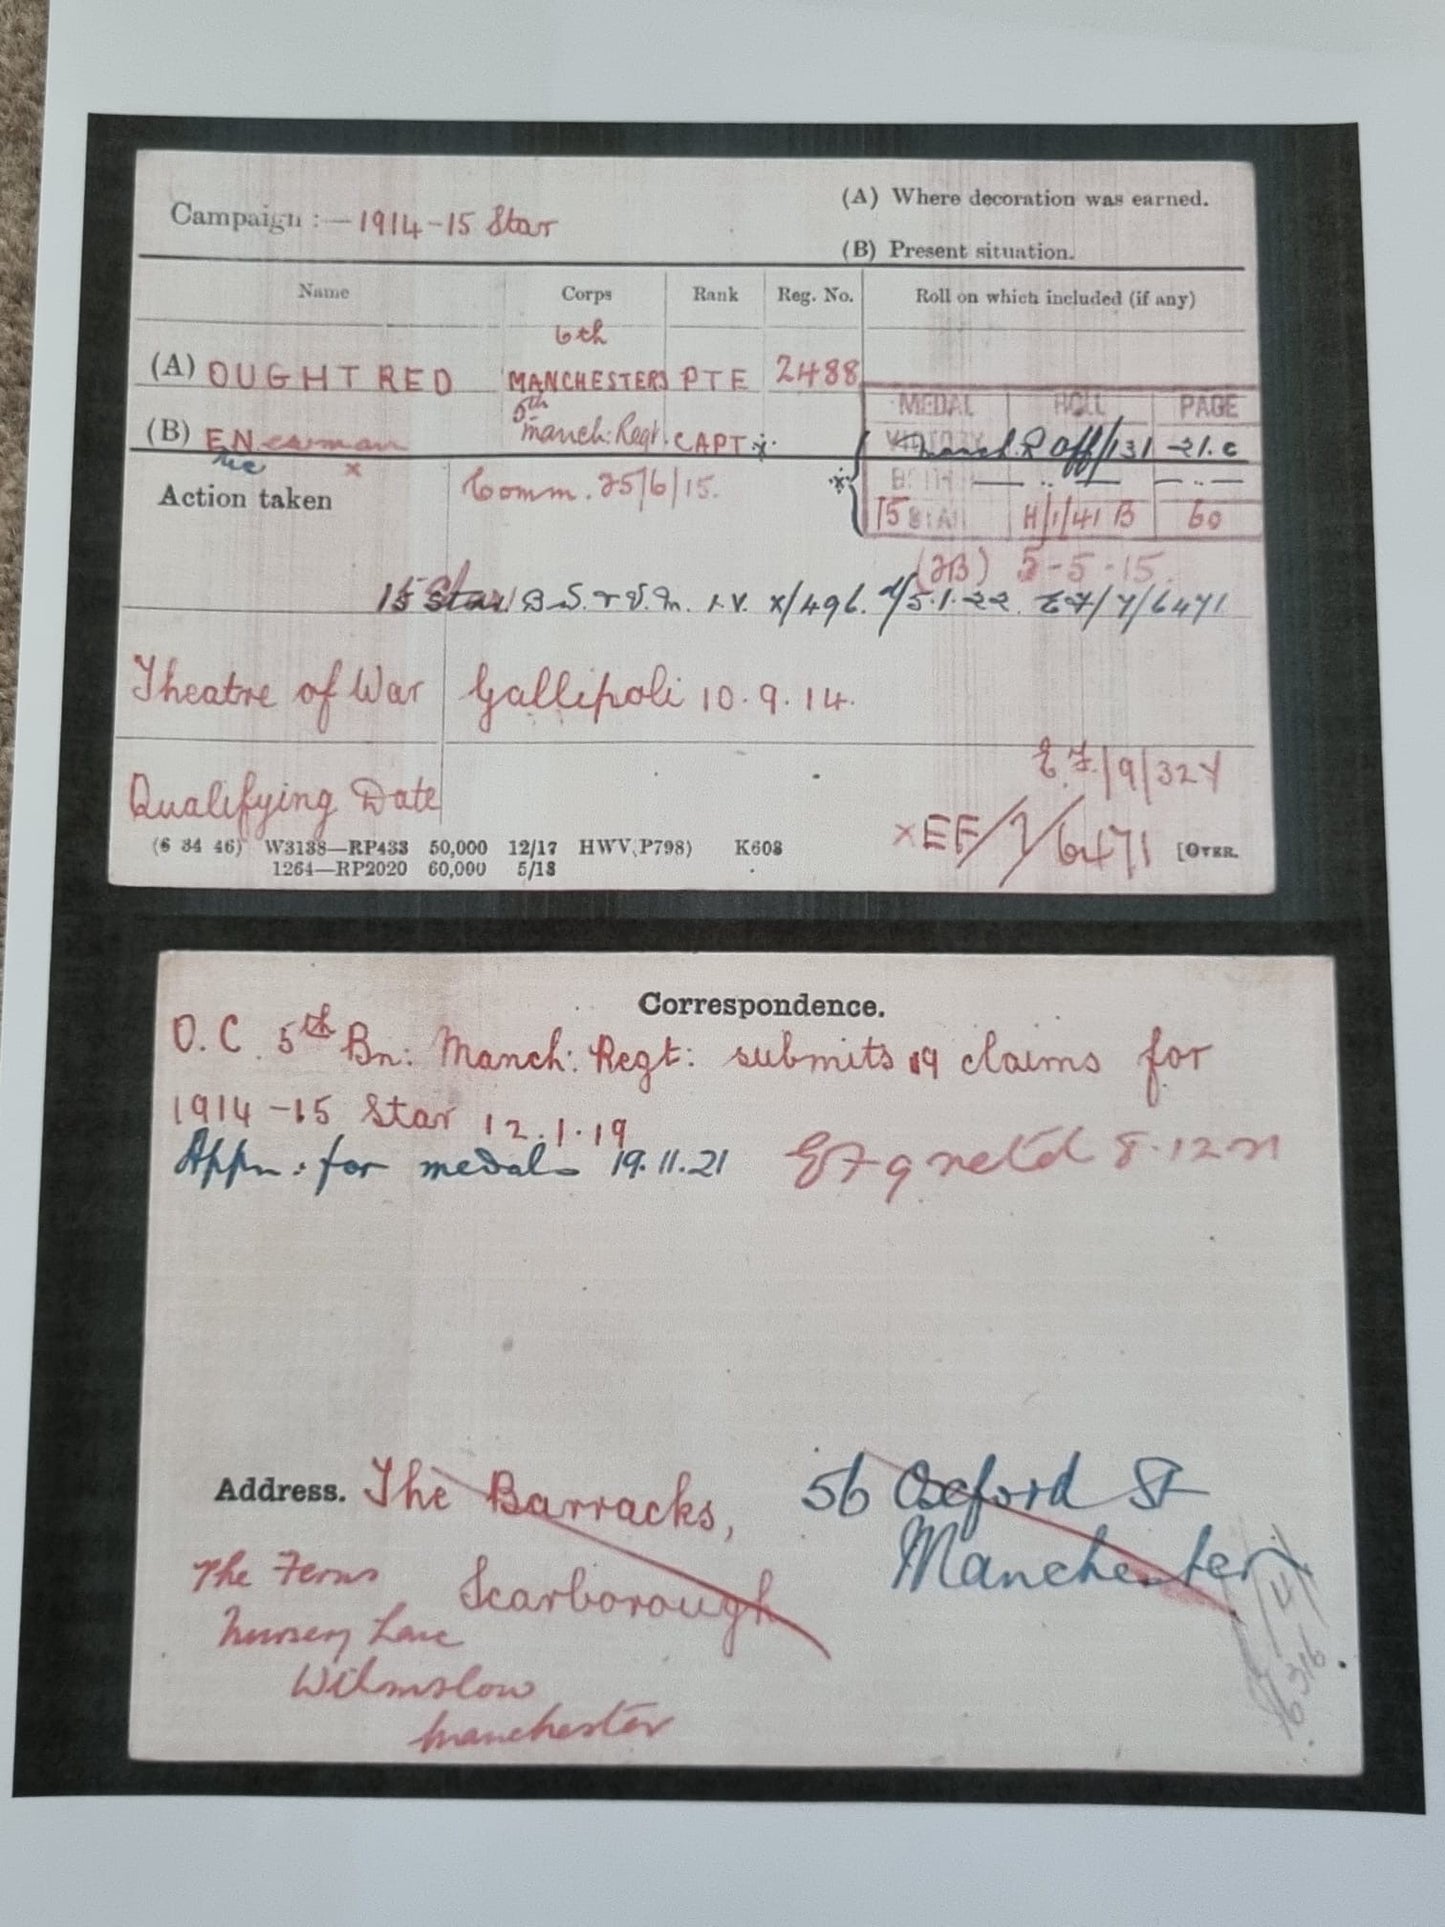 Campaign :- 1914-15 Star
(A) Where decoration was earned.
(B) Present situation.
Name Corps Rank Reg. No. Roll on which included (if any)
6th
(A) OUGHTRED MANCHESTERS PTE 2488
MEDAL ROLL PAGE
5th
(B) E.N. Manch: Regt. CAPT
VICTORY Manch. R Off/131
Action taken Comm. 25/6/15.
15 STAR H/1/41 B 60
5-5-15.
15 Star B.S. + V.M. I.V. X/496. d/5.1.22. E7/7/6471
Theatre of War Gallipoli 10.9.14.
E.F./9/327
Qualifying Date
XEF/7/6471 [OVER.
(6 34 46) W3188—RP433 50,000 12/17 HWV(P798) K608
1264—RP2020 60,000 5/18
Correspondence.
O.C. 5th Bn: Manch: Regt: submits 19 claims for
1914-15 Star 12.1.19
Appn: for medals 19.11.21 EF9 retd 8.12.21
Address. The Barracks,
Scarborough
56 Oxford St
Manchester
The Ferns
Nursery Lane
Wilmslow
Manchester